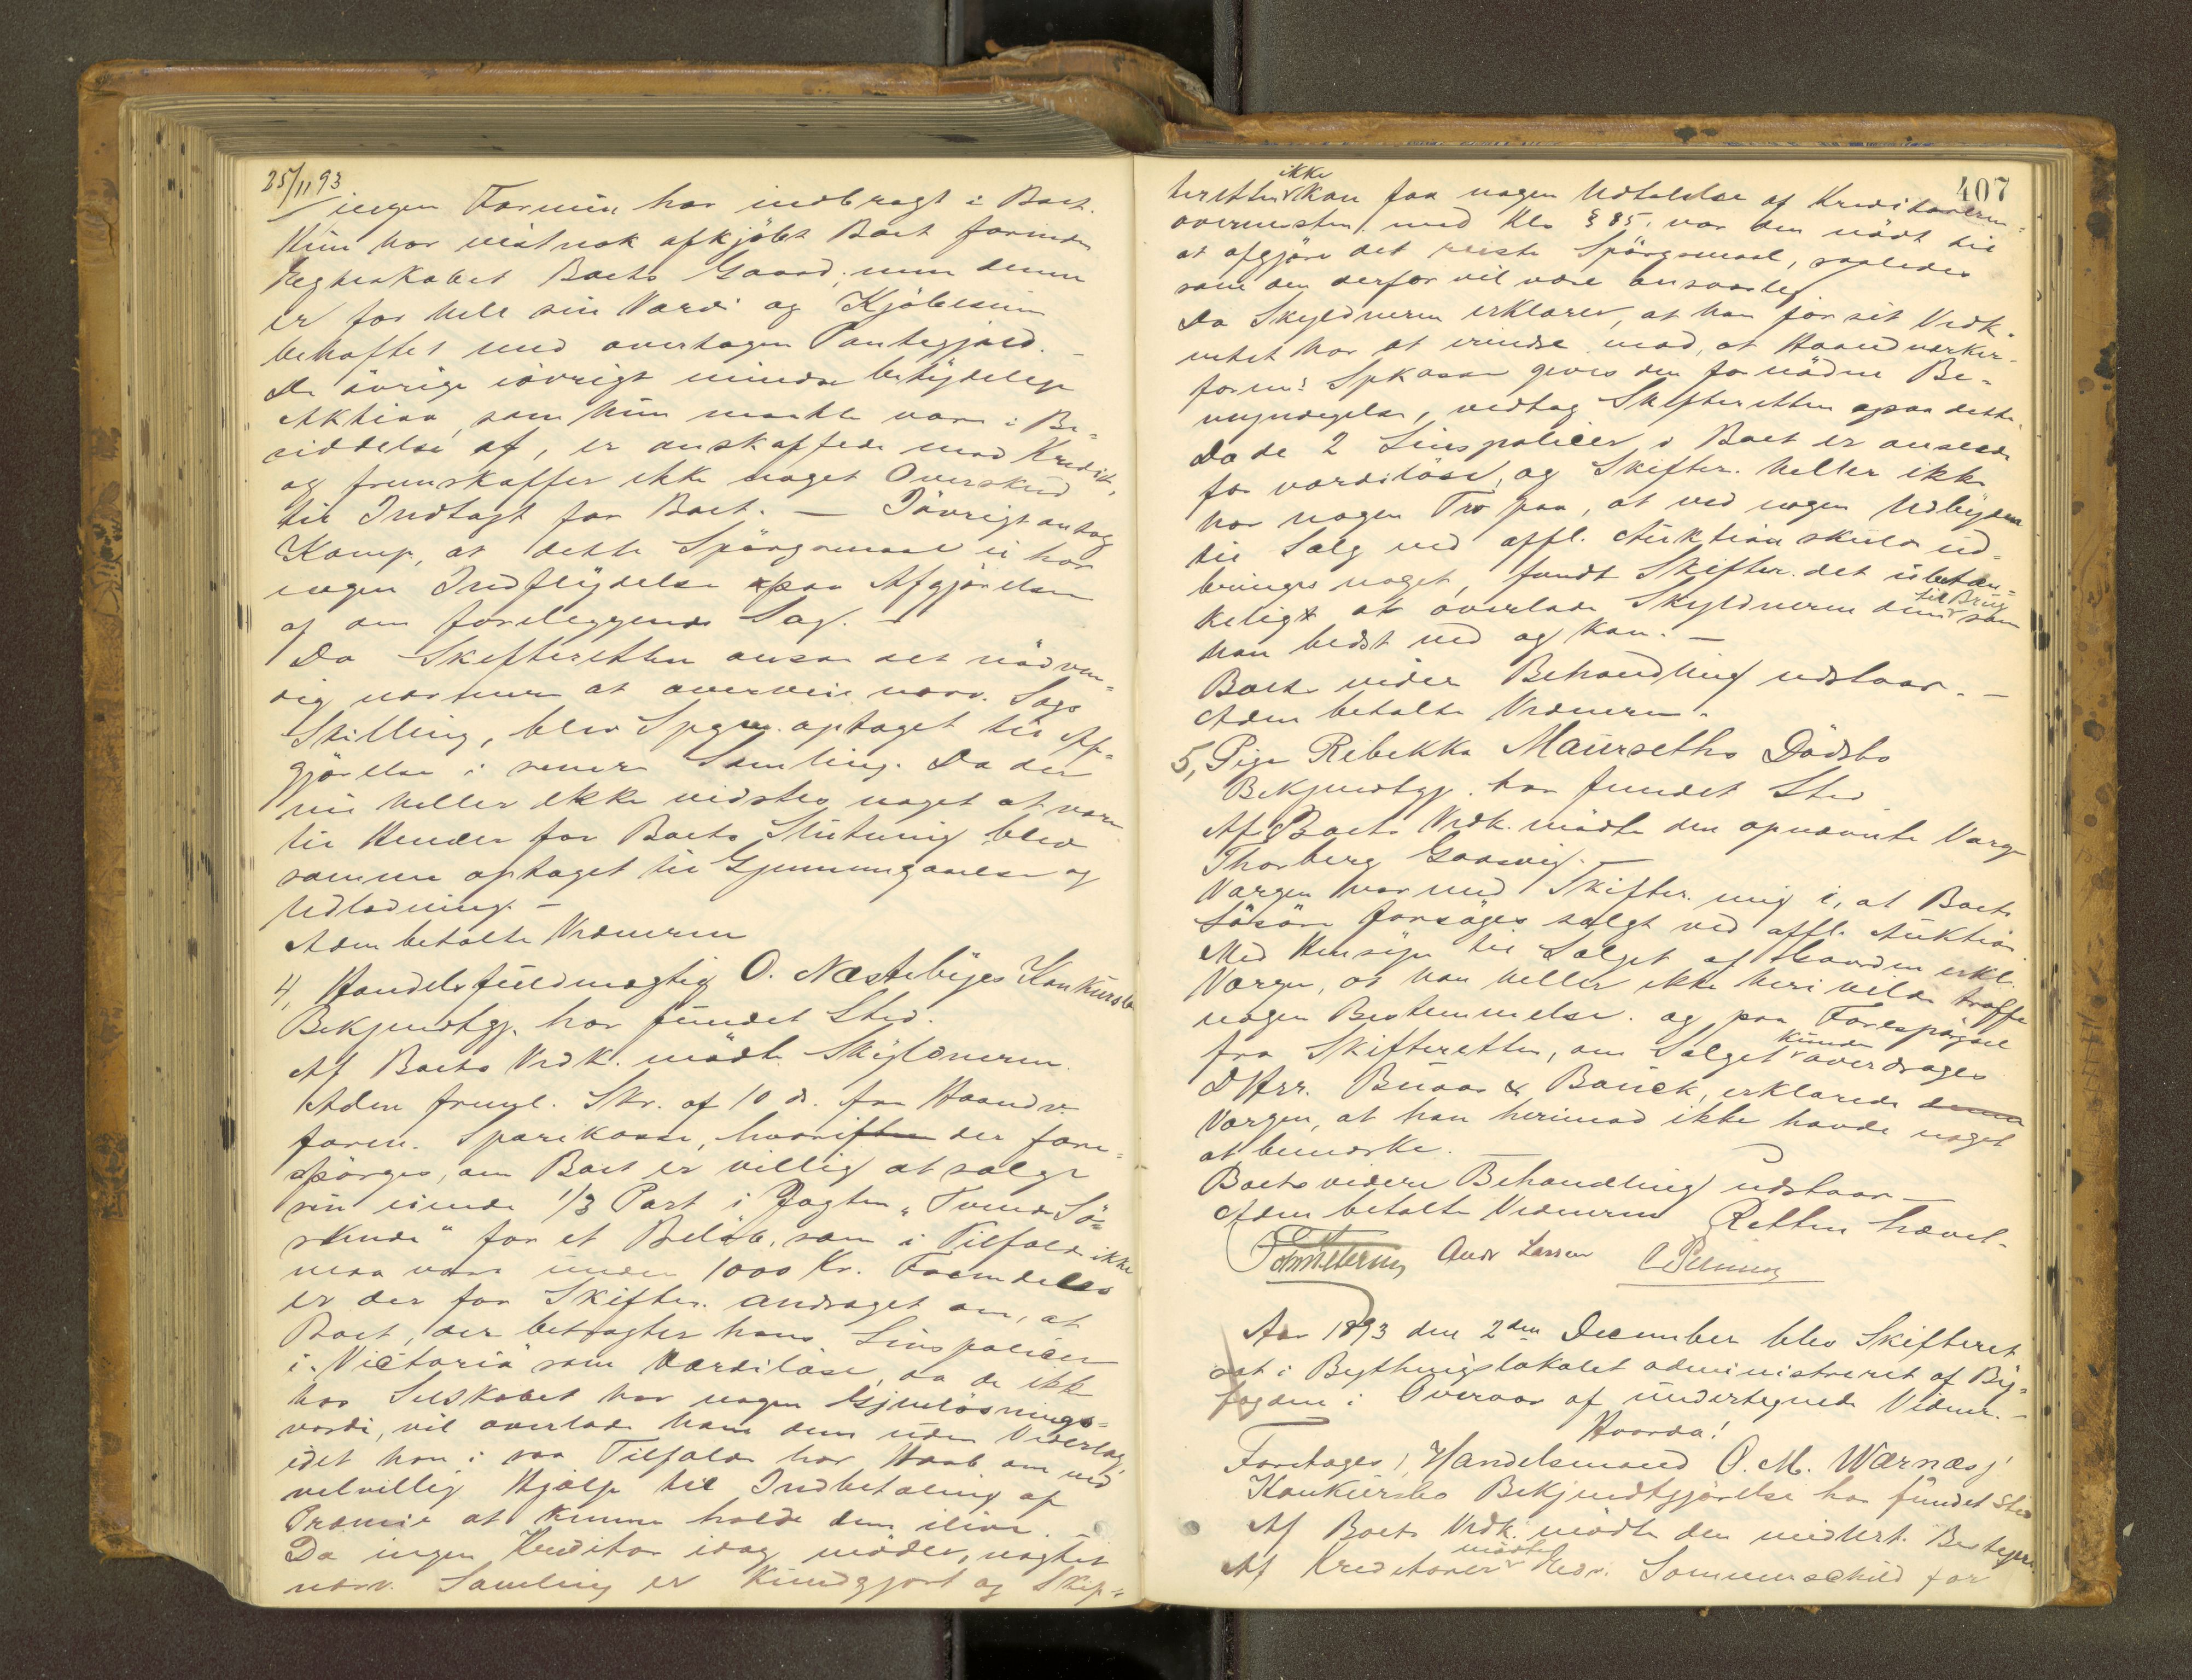 25/11 93
ingen Formue har indbragt i Boet.
Hun har vistnok afkjöbt Boet forinden
Ægteskabet Boets Gaard, men denne
er for hele sin Værdi og Kjöbesum
behæftet med overtagen Pantegjæld. –
De övrige iövrigt mindre betydelige
Aktiva, som hun maatte være i Be=
siddelse af, er anskaffede mod Kredit,
og fremskaffer ikke noget Overskud
til Indtægt for Boet. – Iövrigt antog
Kamp, at dette Spörgsmaal ei har
nogen Indflydelse paa Afgjörelsen
af den foreliggende Sag. –
Da Skifteretten ansaa det nödven=
dig nærmere at overveie nærv. Sags
Stilling, blev Spgm. optaget til Af=
gjörelse i senere Samling. Da der
nu heller ikke vidstes noget at være
til Hinder for Boets Slutning blev
samme optaget til Gjennemgaaelse og
Udlodning. –
Adm betalte Vidnerne
4, Handelsfuldmægtig O. Næstebyes Konkursbo
Bekjendtgj. har fundet Sted.
Af Boets Vedk. mödte Skyldneren.
Adm freml. Skr. af 10 ds. fra Haandv.
foren. Sparekasse, hvori der fore=
spörges, om Boet er villig at sælge
sin eiende 1/3 Part i Jagten "Tvende Sö=
skende" for et Belöb, som i Tilfælde ikke
maa være under 1000 Kr. Fremdeles
er der for Skifter. andraget om, at
Boet, der betragter hans Livspolicer
i "Victoria" som værdilöse, da de ikke
hos Selskabet har nogen Gjenlösnings=
værdi, vil overlade ham dem uden Vederlag,
idet han i saa Tilfælde har Haab om ved
velvillig Hjælp til Indbetaling af
Præmie at kunne holde dem ilive. –
Da ingen Kreditor idag möder, uagtet
nærv. Samling er kundgjort og Skif=
407
teretten ikke kan faa nogen Udtalelse af Kreditorerne
overensstem. med Kl. § 85, var den nödt til
at afgjöre det reiste Spörgsmaal, saaledes
som den derfor vil være ansvarlig
Da Skyldneren erklærer, at han for sit Vedk.
intet har at erindre mod, at Haandværker-
foren: Spkasse gives den fornödne Be=
myndigelse, vedtog Skifteretten ogsaa dette.
Da de 2 Livspolicer i Boet er ansees
for værdilöse, og Skifter. heller ikke
har nogen Tro paa, at ved nogen Udbyden
til Salg ved offl. Auktion skulde ud=
bringes noget, fandt Skifter. det ubetæn=
keligt at overlade Skyldneren dem til Brug som
han bedst ved og kan. –
Boets videre Behandling udstaar. –
Adm betalte Vidnerne.
5, Pige Rebekka Maurseths Dödsbo
Bekjendtgj. har fundet Sted
Af Boets Vedk. mödte den opnævnte Værge
Thorberg Gaasvig. –
Værgen var med Skifter. enig i, at Boets
Lösöre forsöges solgt ved offl. Auktion
Med Hensyn til Salget af Gaarden erkl.
Værgen, at han heller ikke heri vilde træffe
nogen Bestemmelse. og paa Forespörgsel
fra Skifteretten, om Salget kunde overdrages
DHrr. Buaas & Bauck, erklærede
Værgen, at han herimod ikke havde noget
at bemærke.
Boets videre Behandling udstaar –
Adm betalte Vidnerne Retten hævet.
Andr Larsen
Aar 1893 den 2den December blev Skifteret
sat i Bythingslokalet administreret af By=
fogden i Overvær af undertegnede Vidner. –
Hvorda!
Foretages 1, Handelsmand O. M. Wærnæs'
Konkursbo Bekjendtgjörelse har fundet Sted
Af Boets Vedk. mödte den midlert. Bestyrer.
Af Kreditorer mödte Sommerschild for